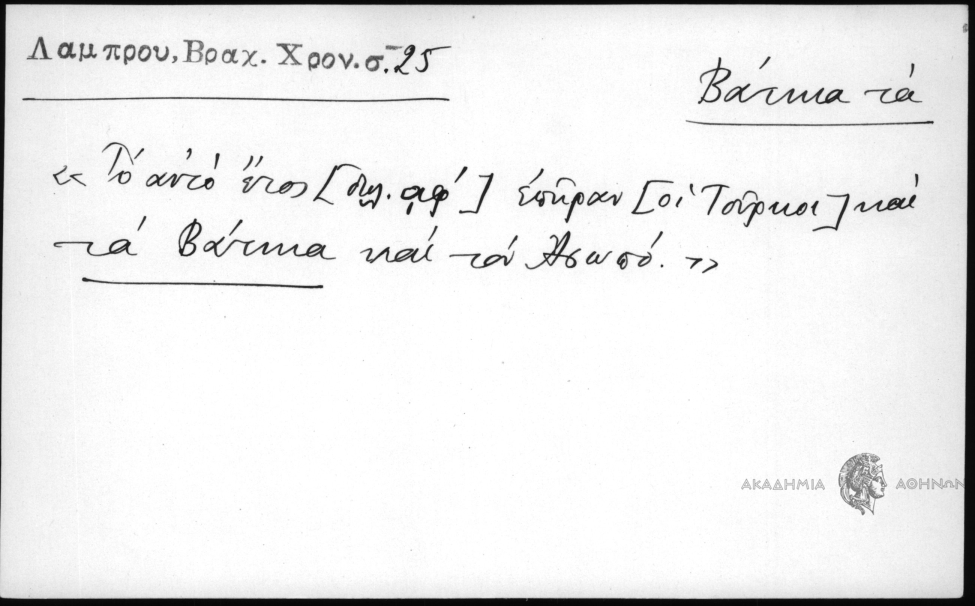 Λαμπρου, Βραχ. Χρον. σ. 25
Βάτικα τά
« Τό αὐτό ἔτος [δηλ. ͵αφ΄] ἐπῆραν [οἱ Τοῦρκοι] καί
τά Βάτικα καί τόν Ἀσωπό. »
ΑΚΑΔΗΜΙΑ ΑΘΗΝΩΝ